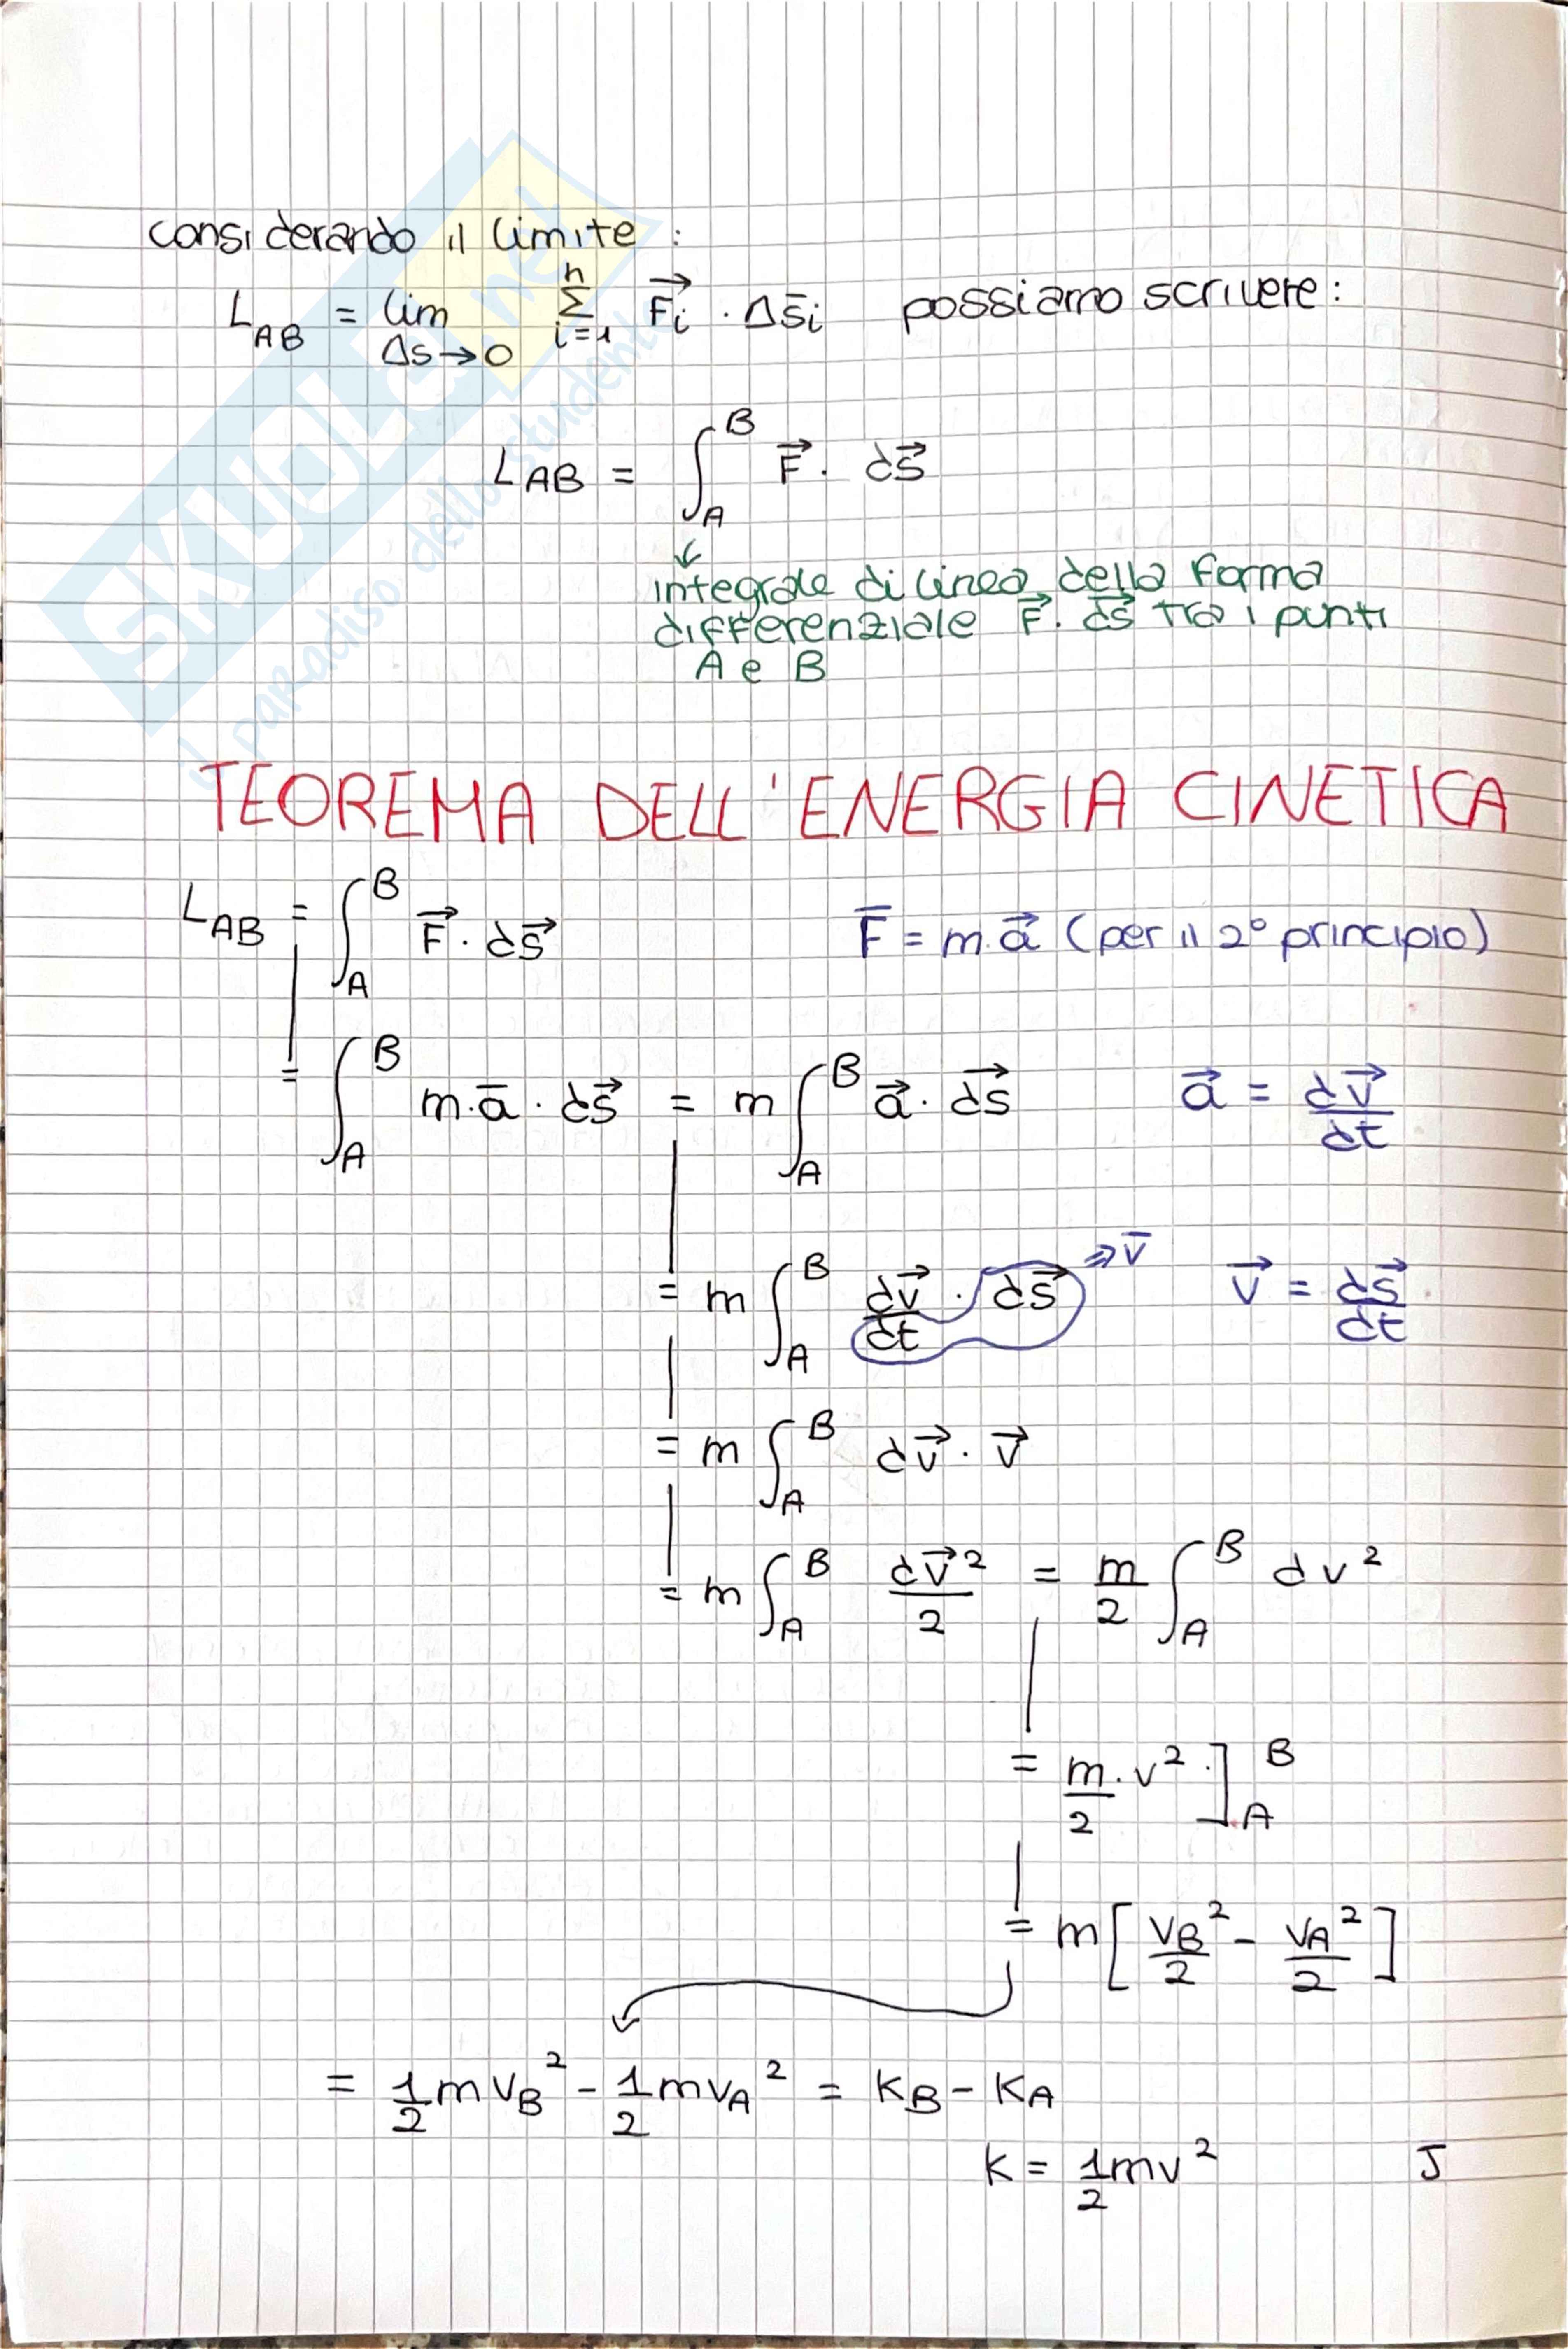 considerando il limite :
L_AB = lim_{Δs→0} Σ_{i=1}^{n} F⃗i · Δs̄i possiamo scrivere :
L_AB = ∫_A^B F⃗ · ds⃗
↓
integrale di linea della forma
differenziale F⃗ · ds⃗ tra i punti
A e B
SKUOLA.net
il paradiso dello studente
TEOREMA DELL'ENERGIA CINETICA
L_AB = ∫_A^B F⃗ · ds⃗ F̄ = m·a⃗ (per il 2° principio)
= ∫_A^B m·ā · ds⃗ = m ∫_A^B a⃗ · ds⃗ a⃗ = dv⃗/dt
= m ∫_A^B dv⃗/dt · ds⃗ ⇒ v̄ v⃗ = ds⃗/dt
= m ∫_A^B dv⃗ · v⃗
= m ∫_A^B dv⃗²/2 = m/2 ∫_A^B dv²
= m/2 · v² · ]_A^B
= m [ v_B²/2 - v_A²/2 ]
= 1/2 m v_B² - 1/2 m v_A² = K_B - K_A
K = 1/2 m v² J